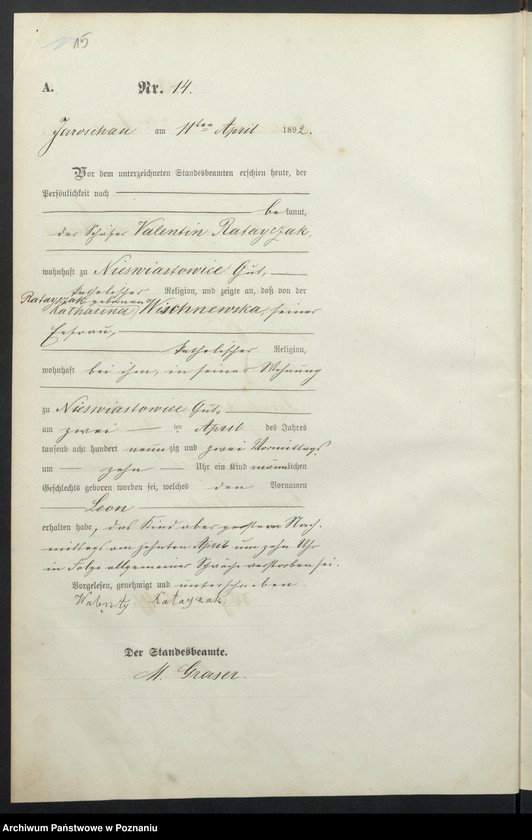 15
A. Nr. 14.
Jaroschau am 11ten April 1892.
Vor dem unterzeichneten Standesbeamten erschien heute, der
Persönlichkeit nach
bekannt,
der Schäfer Valentin Ratayczak,
wohnhaft zu Nieswiastowice Gut,
katholischer Religion, und zeigte an, daß von der
Ratayczak geborenen
Katharina, Wischnewska, seiner
Ehefrau,
katholischer Religion,
wohnhaft bei ihm, in seiner Wohnung
zu Nieswiastowice Gut,
am zwei ten April des Jahres
tausend acht hundert neunzig und zwei Vormittags
um zehn Uhr ein Kind männlichen
Geschlechts geboren worden sei, welches den Vornamen
Leon
erhalten habe, das Kind aber gestern Nach-
mittags am zehnten April um zehn Uhr
in Folge allgemeiner Schwäche verstorben sei.
Vorgelesen, genehmigt und unterschrieben.
Walenty Ratayczak
Der Standesbeamte.
M. Graser.
Archiwum Państwowe w Poznaniu